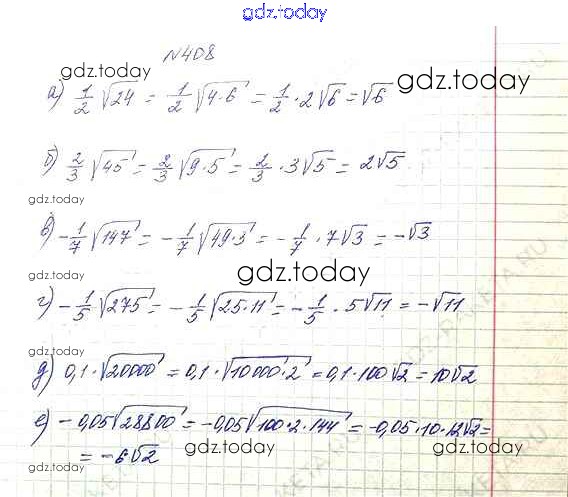 gdz.today
№408
gdz.today
gdz.today
а) 1/2 √24 = 1/2 √4·6 = 1/2 · 2√6 = √6
б) 2/3 √45 = 2/3 √9·5 = 2/3 · 3√5 = 2√5
gdz.today
gdz.today
в) -1/7 √147 = -1/7 √49·3 = -1/7 · 7√3 = -√3
gdz.today
gdz.today
г) -1/5 √275 = -1/5 √25·11 = -1/5 · 5√11 = -√11
gdz.today
д) 0,1·√20000 = 0,1·√10000·2 = 0,1·100√2 = 10√2
е) -0,05√28800 = -0,05√100·2·144 = -0,05·10·12√2 =
gdz.today
= -6√2
gdz.today
gdz.today